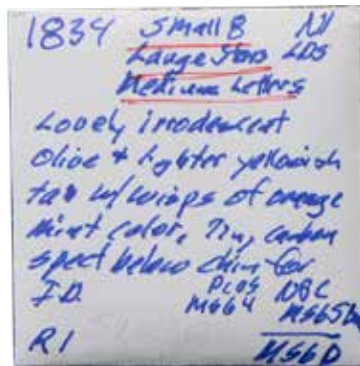 1834 Small 8 N1
Large Stars LDS
Medium Letters
Lovely irrodescent
Olive & lighter yellowish
tan w/ wisps of orange
mint color, Tiny carbon
spect below chin for
I.D. PCGS NBC
MS64 MS65bn
R1 MS60